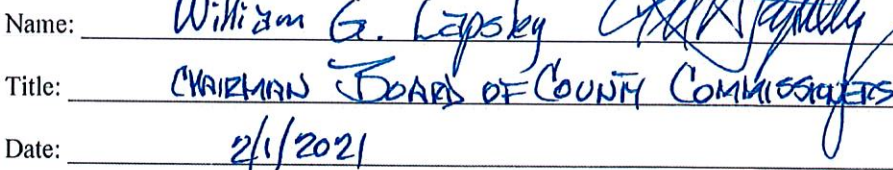 Name: William G. Lapsley
Title: CHAIRMAN BOARD OF COUNTY COMMISSIONERS
Date: 2/1/2021